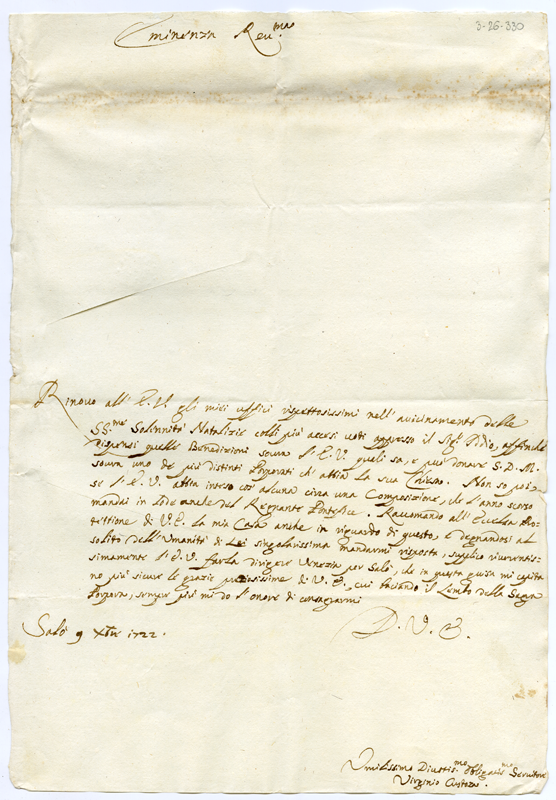 3-26-330
Eminenza Reu.mo
Rinouo all' E.V. gli miei uffici rispettosissimi nell' auicinamento delle
SS.me Solennità Natalizie colli più accesi uoti appresso il Sig.r Iddio, affinche
dispensi quelle Benedizioni soura l' E.V. quali sa, e può donare S.D.M.
soura uno de più distinti Porporati ch' abbia la sua Chiesa. Non so poi
se l' E.V. abbia inteso cos' alcuna circa una Composizione, che l' anno scorso
mandai in lode anche del Regnante Pontefice. Raccomando all' Eccelsa Pro-
tettione di V.E. la mia Casa anche in riguardo di questo, e degnandosi al
solito dell' Umanità di Lei singolarissima mandarmi risposta, supplico riuerentis-
simamente l' E.V. farla dirigere Venezia per Salò, che in questa guisa mi capita-
no più sicure le grazie preziosissime di V.E., cui baciando il Lembo della Sagra
Porpora, sempre più mi do l' onore di consagrarmi
D. V. E.
Salò 9 Xbre 1722.
Umilissimo Diuotis.mo Obligatis.mo Seruitore
Virginio